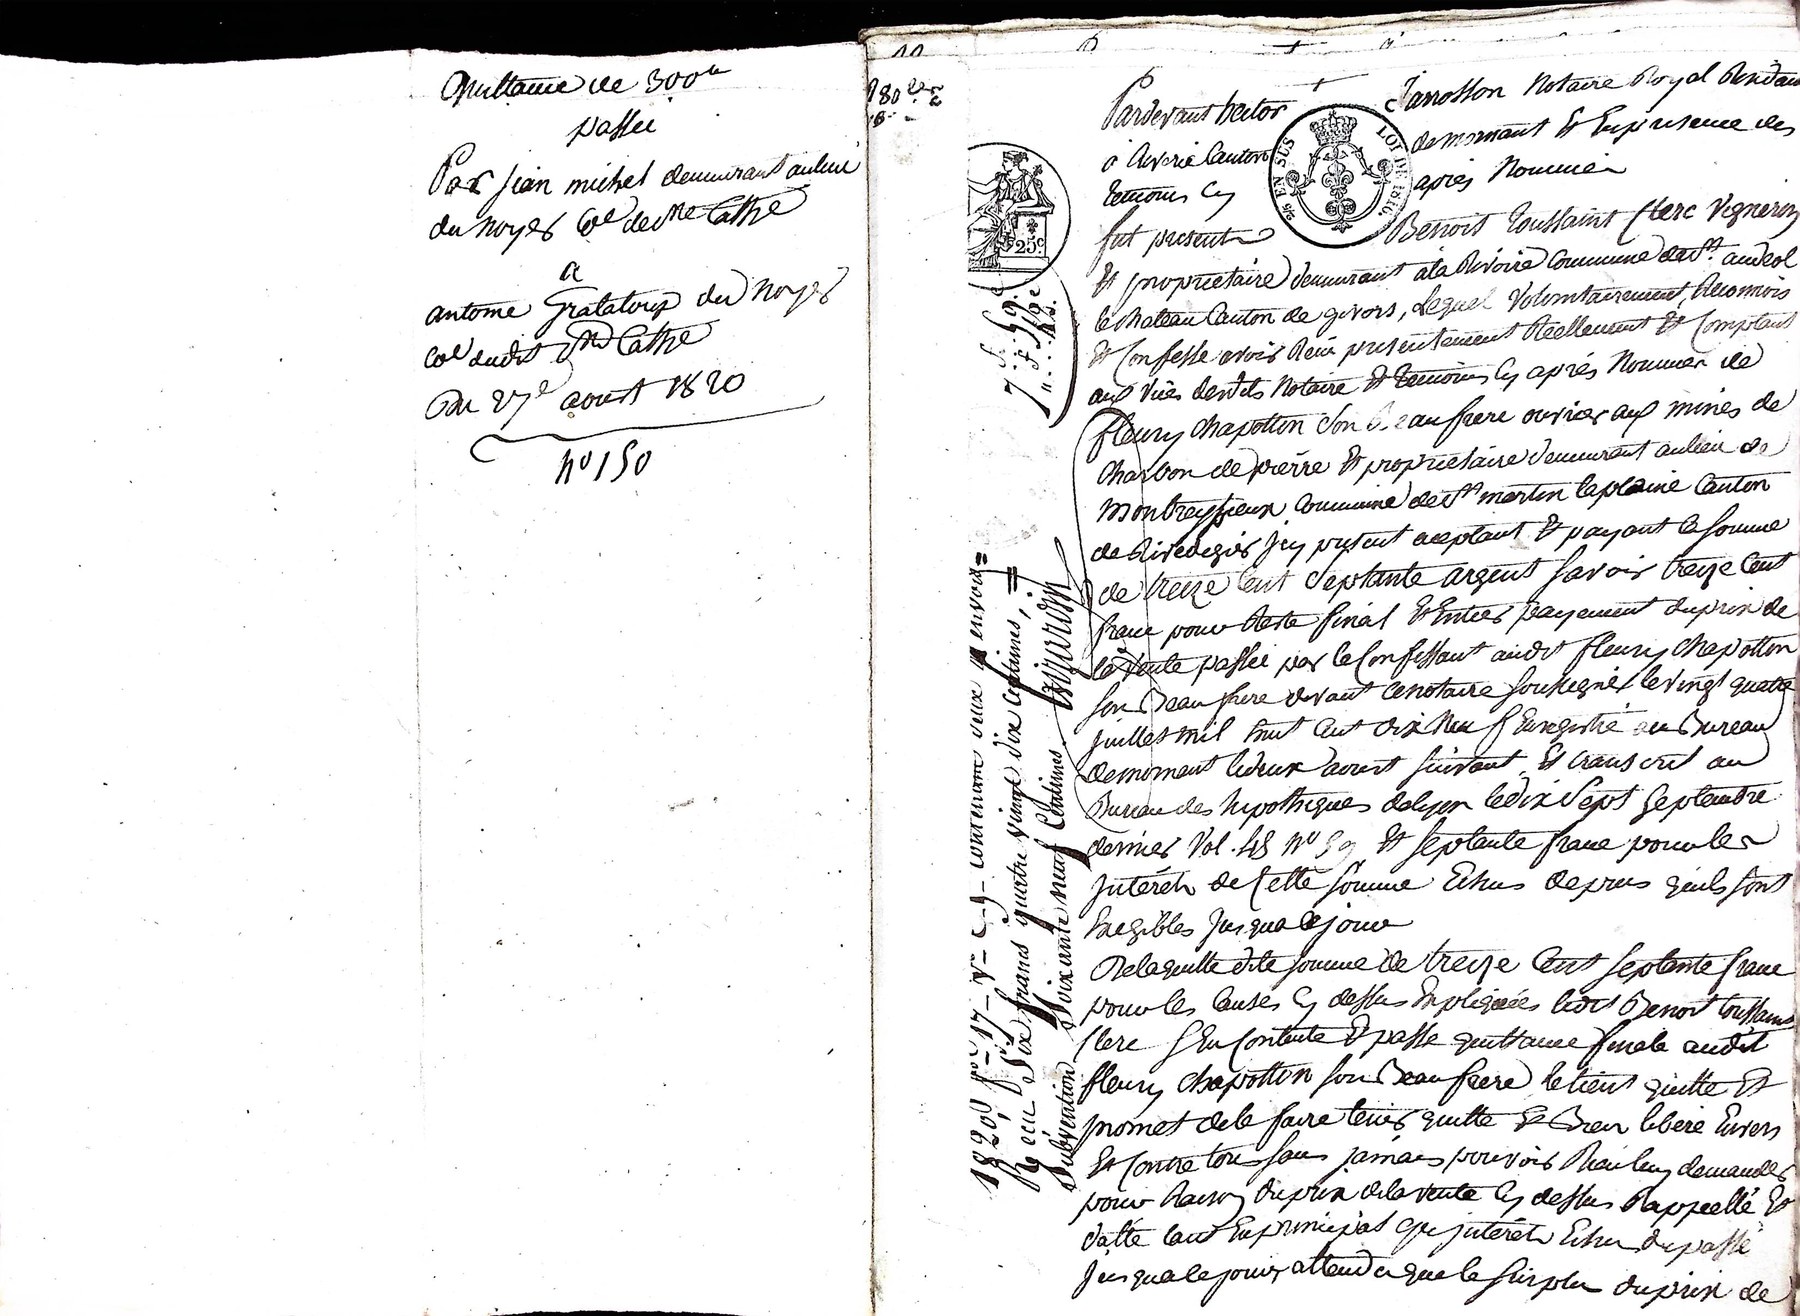 Quittance de 300 fr
passée
Par jean michel demeurant au lieu
du noyer Cne de Ste Cathe
a
antoine Gralaloup du noyer
Cne dudit Ste Cathe
Du 27e aoust 1820
No 150
Pardevant hector Janosson Notaire Royal Residant
à Riverie Canton de mornant Et En presence des
temoins Cy après Nommés
fut present Benoit toussaint Clerc Vigneron
Et proprietaire demeurant a la Rivoire Commune de St. andeol
le Chateau Canton de givors, Lequel Volontairement Reconnois
Et Confesse avoir Recu presentement Réellement Et Comptant
aux vües desdits Notaire Et temoins Cy après Nommés de
fleury Chapotton son Beaufrere ouvrier aux mines de
Charbon de pierre Et proprietaire demeurant au lieu de
Montreyssieux Commune de St martin laplaine Canton
de Rivedegier Jcy present aceptant Et payant la somme
de treize Cent Septante argent Savoir treize Cent
franc pour Reste final Et Entier payement du prix de
la Vente passée par le Confessant audit fleury Chapotton
son Beaufrere devant Ce notaire Soussigné le vingt quatre
juillet mil huit Cent dix Neuf Enregistré au Bureau
de mornant le deux aoust suivant, Et transcrit au
Bureau des hipotheques de lyon le dix Sept Septembre
dernier Vol. 48 No 59 Et Septante franc pour les
Jntérêts de Cette somme Echus depuis qu'ils sont
Exegibles Jusqua Ce jour
De laquelle dite somme de treize Cent Septante franc
pour les Causes Cy dessus Expliquées ledit Benoit toussaint
Clerc S'En Contente Et passe quittance finale audit
fleury Chapotton son Beaufrere le tient quitte Et
promet de le faire tenir quitte Et Bien libéré Envers
Et Contre tous sans jamais pouvoir Rien luy demander
pour Raison du prix de la vente Cy dessus Rappellé Et
datté tant En principal que jntérêts Echus du passé
Jusqua Ce jour, attendu que le surplus du prix de
EN SUS
LOI DE 1816
25 c
1820 fo 17 Vo contenant deux renvois
Recu Six francs quatre vingt dix centimes,
Subvention Soixante neuf Centimes